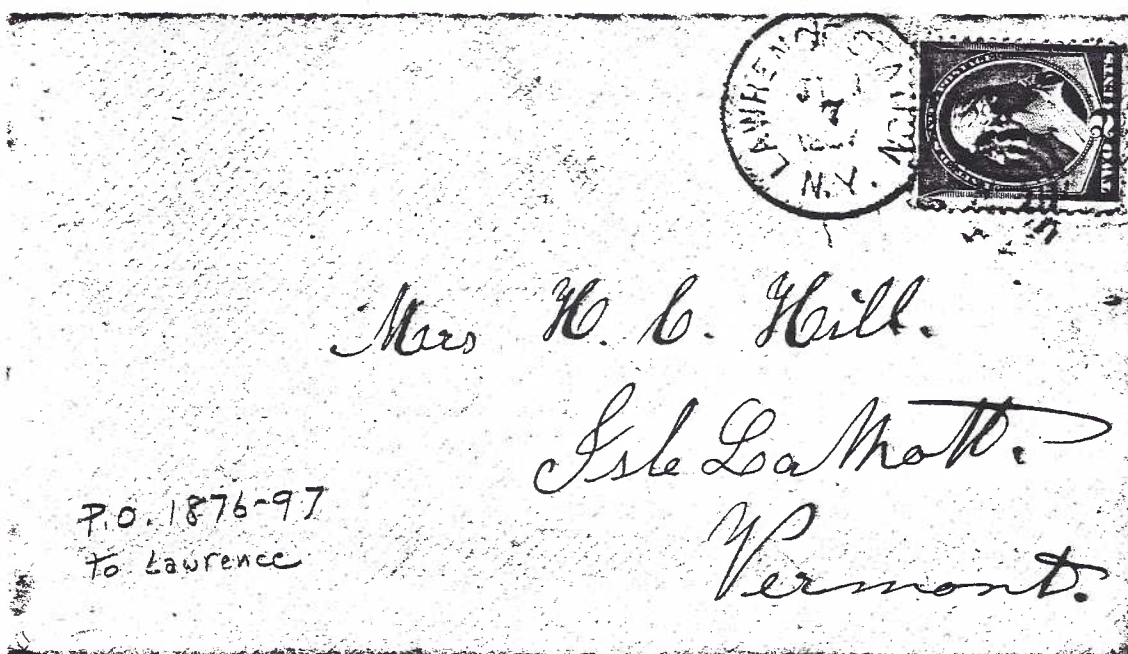 LAWREN
N.Y.
2
TWO CENTS
Mrs H. C. Hill.
Isle La Mott.
Vermont.
P.O. 1876-97
to Lawrence